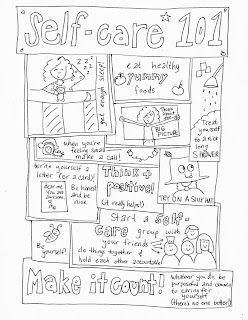 Self-care 101
zzzz
get enough sleep!
eat healthy
yummy
foods
Think
about
the
BIG
PICTURE
Treat
yourself
to a nice
long
SHOWER
when you're
feeling small
make a call!
Write yourself a
letter (or a card)!
dear me
you are
awesome.
me
Be honest
and be
nice
Think +
positive!
(it really helps!)
TRY ON A SILLY HAT
Be
yourself!
Start a Self-
Care group with
your friends
do things together &
hold each other accountable!
Make it count!
Whatever you do, be
purposeful and commit
to caring for
yourself
(there's no one better!)